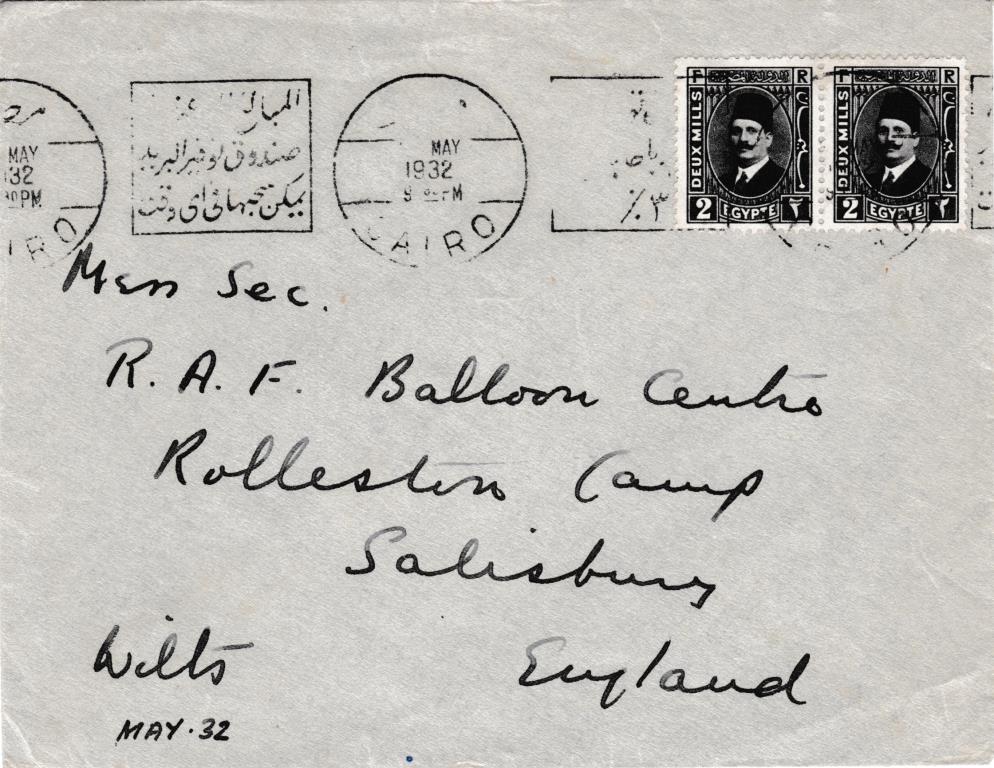 المبالغ
صندوق توفير البريد
يمكن سحبها في أي وقت
MAY
132
PM
IRO
MAY
1932
9 PM
CAIRO
٣ ٪
F R
DEUX MILLS
2 EGYPTE ٢
F R
DEUX MILLS
2 EGYPTE ٢
Mess Sec.
R. A. F. Balloon Centre
Rolleston Camp
Salisbury
Wilts England
MAY·32